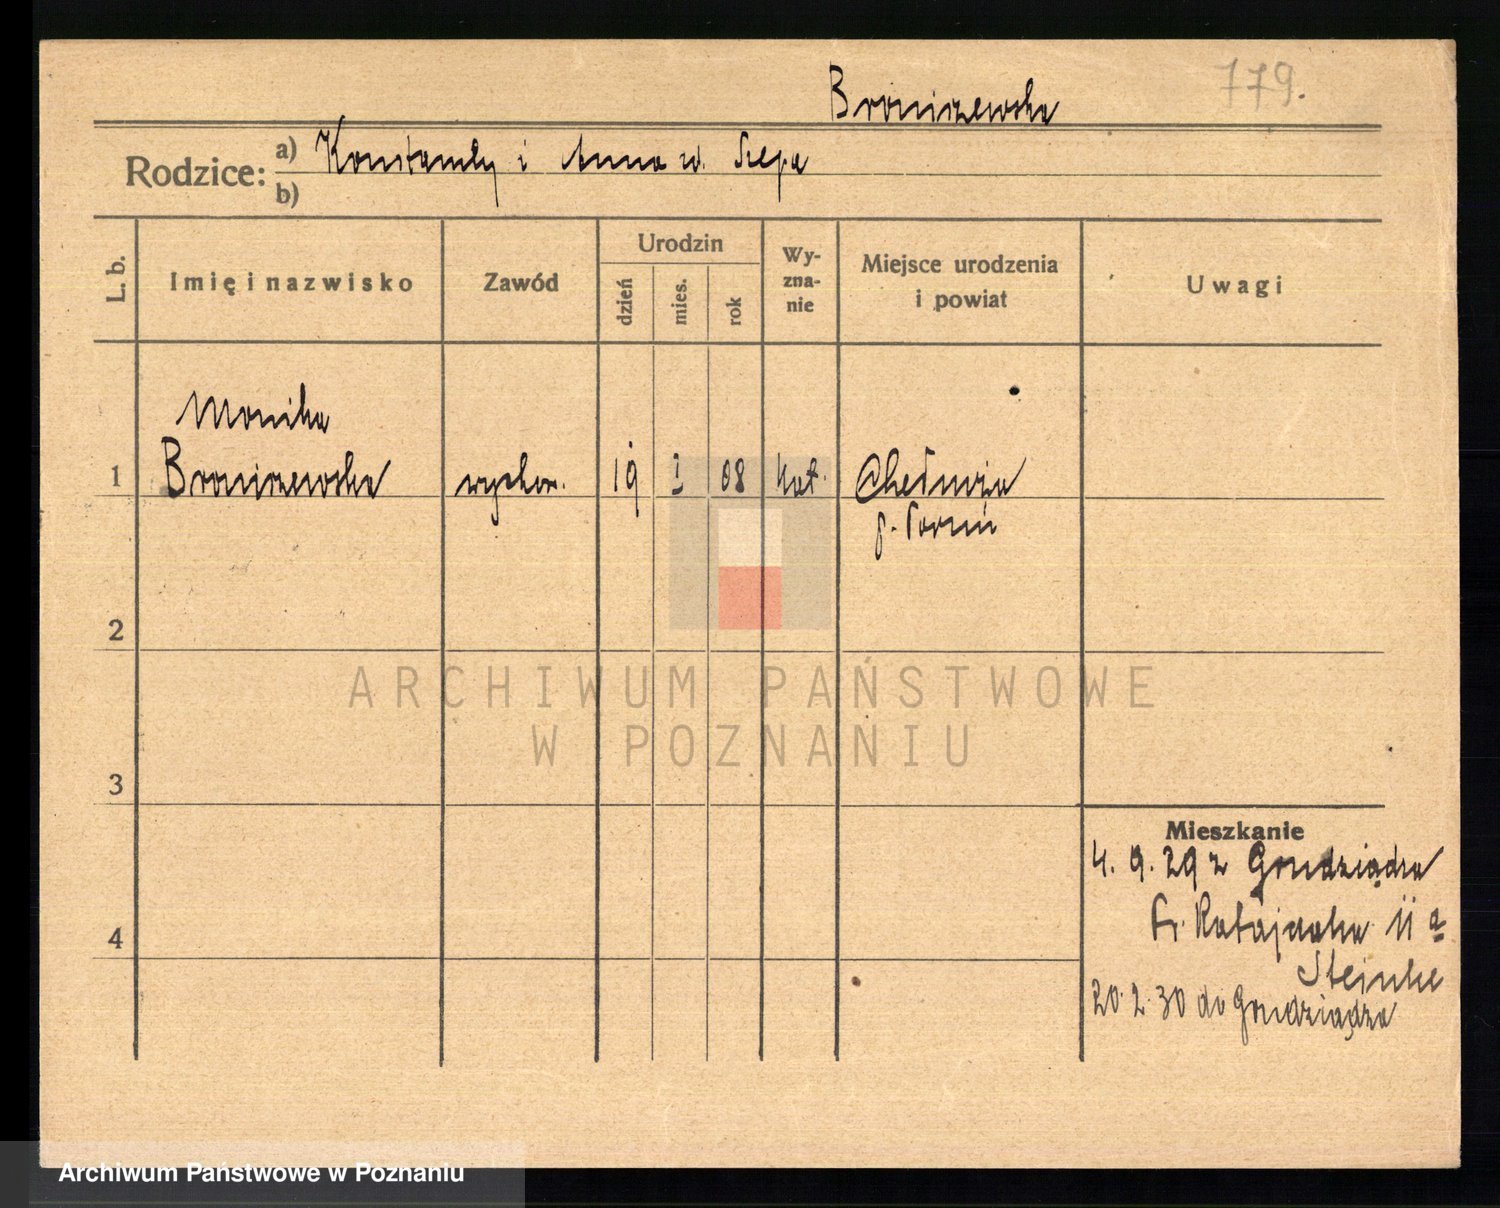 Broniszewska 779.
Rodzice: a) Konstanty i Anna zd. Szepa
b)
L. b. Imię i nazwisko Zawód Urodzin dzień mies. rok Wy-zna-nie Miejsce urodzenia i powiat Uwagi
Monika
1 Broniszewska wychow. 19 I 08 kat. Chełmża
p. Toruń
2
ARCHIWUM PAŃSTWOWE
W POZNANIU
3
Mieszkanie
4. 9. 29 z Grudziądza
Fr. Ratajczaka 11 a
4
Steinke
20. 2. 30 do Grudziądza
Archiwum Państwowe w Poznaniu